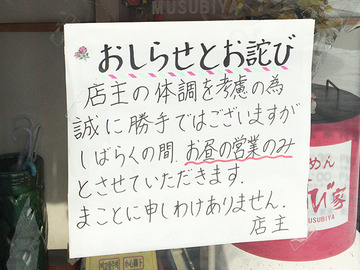 MUSUBIYA
おしらせとお詫び
店主の体調を考慮の為
誠に勝手ではございますが
しばらくの間、お昼の営業のみ
とさせていただきます.
まことに申しわけありません.
店主
めん
び家
MUSUBIYA